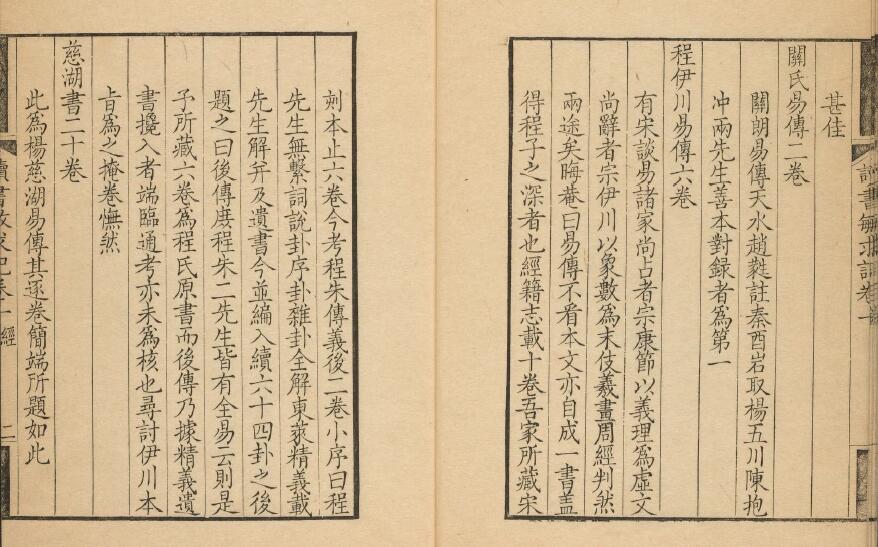 甚佳
關氏易傳二卷
關朗易傳天水趙蕤註秦酉岩取楊五川陳抱
冲兩先生善本對録者爲第一
程伊川易傳六卷
有宋談易諸家尚占者宗康節以義理爲虛文
尚辭者宗伊川以象數爲末伎羲畫周經判然
兩途矣晦菴曰易傳不看本文亦自成一書蓋
得程子之深者也經籍志載十卷吾家所藏宋
刻本止六卷今考程朱傳義後二卷小序曰程
先生無繫詞說卦序卦雜卦全解東萊精義載
先生解并及遺書今並編入續六十四卦之後
題之曰後傳庻程朱二先生皆有全易云則是
子所藏六卷爲程氏原書而後傳乃據精義遺
書攙入者端臨通考亦未爲核也尋討伊川本
旨爲之掩卷憮然
慈湖書二十卷
此爲楊慈湖易傳其逐卷簡端所題如此